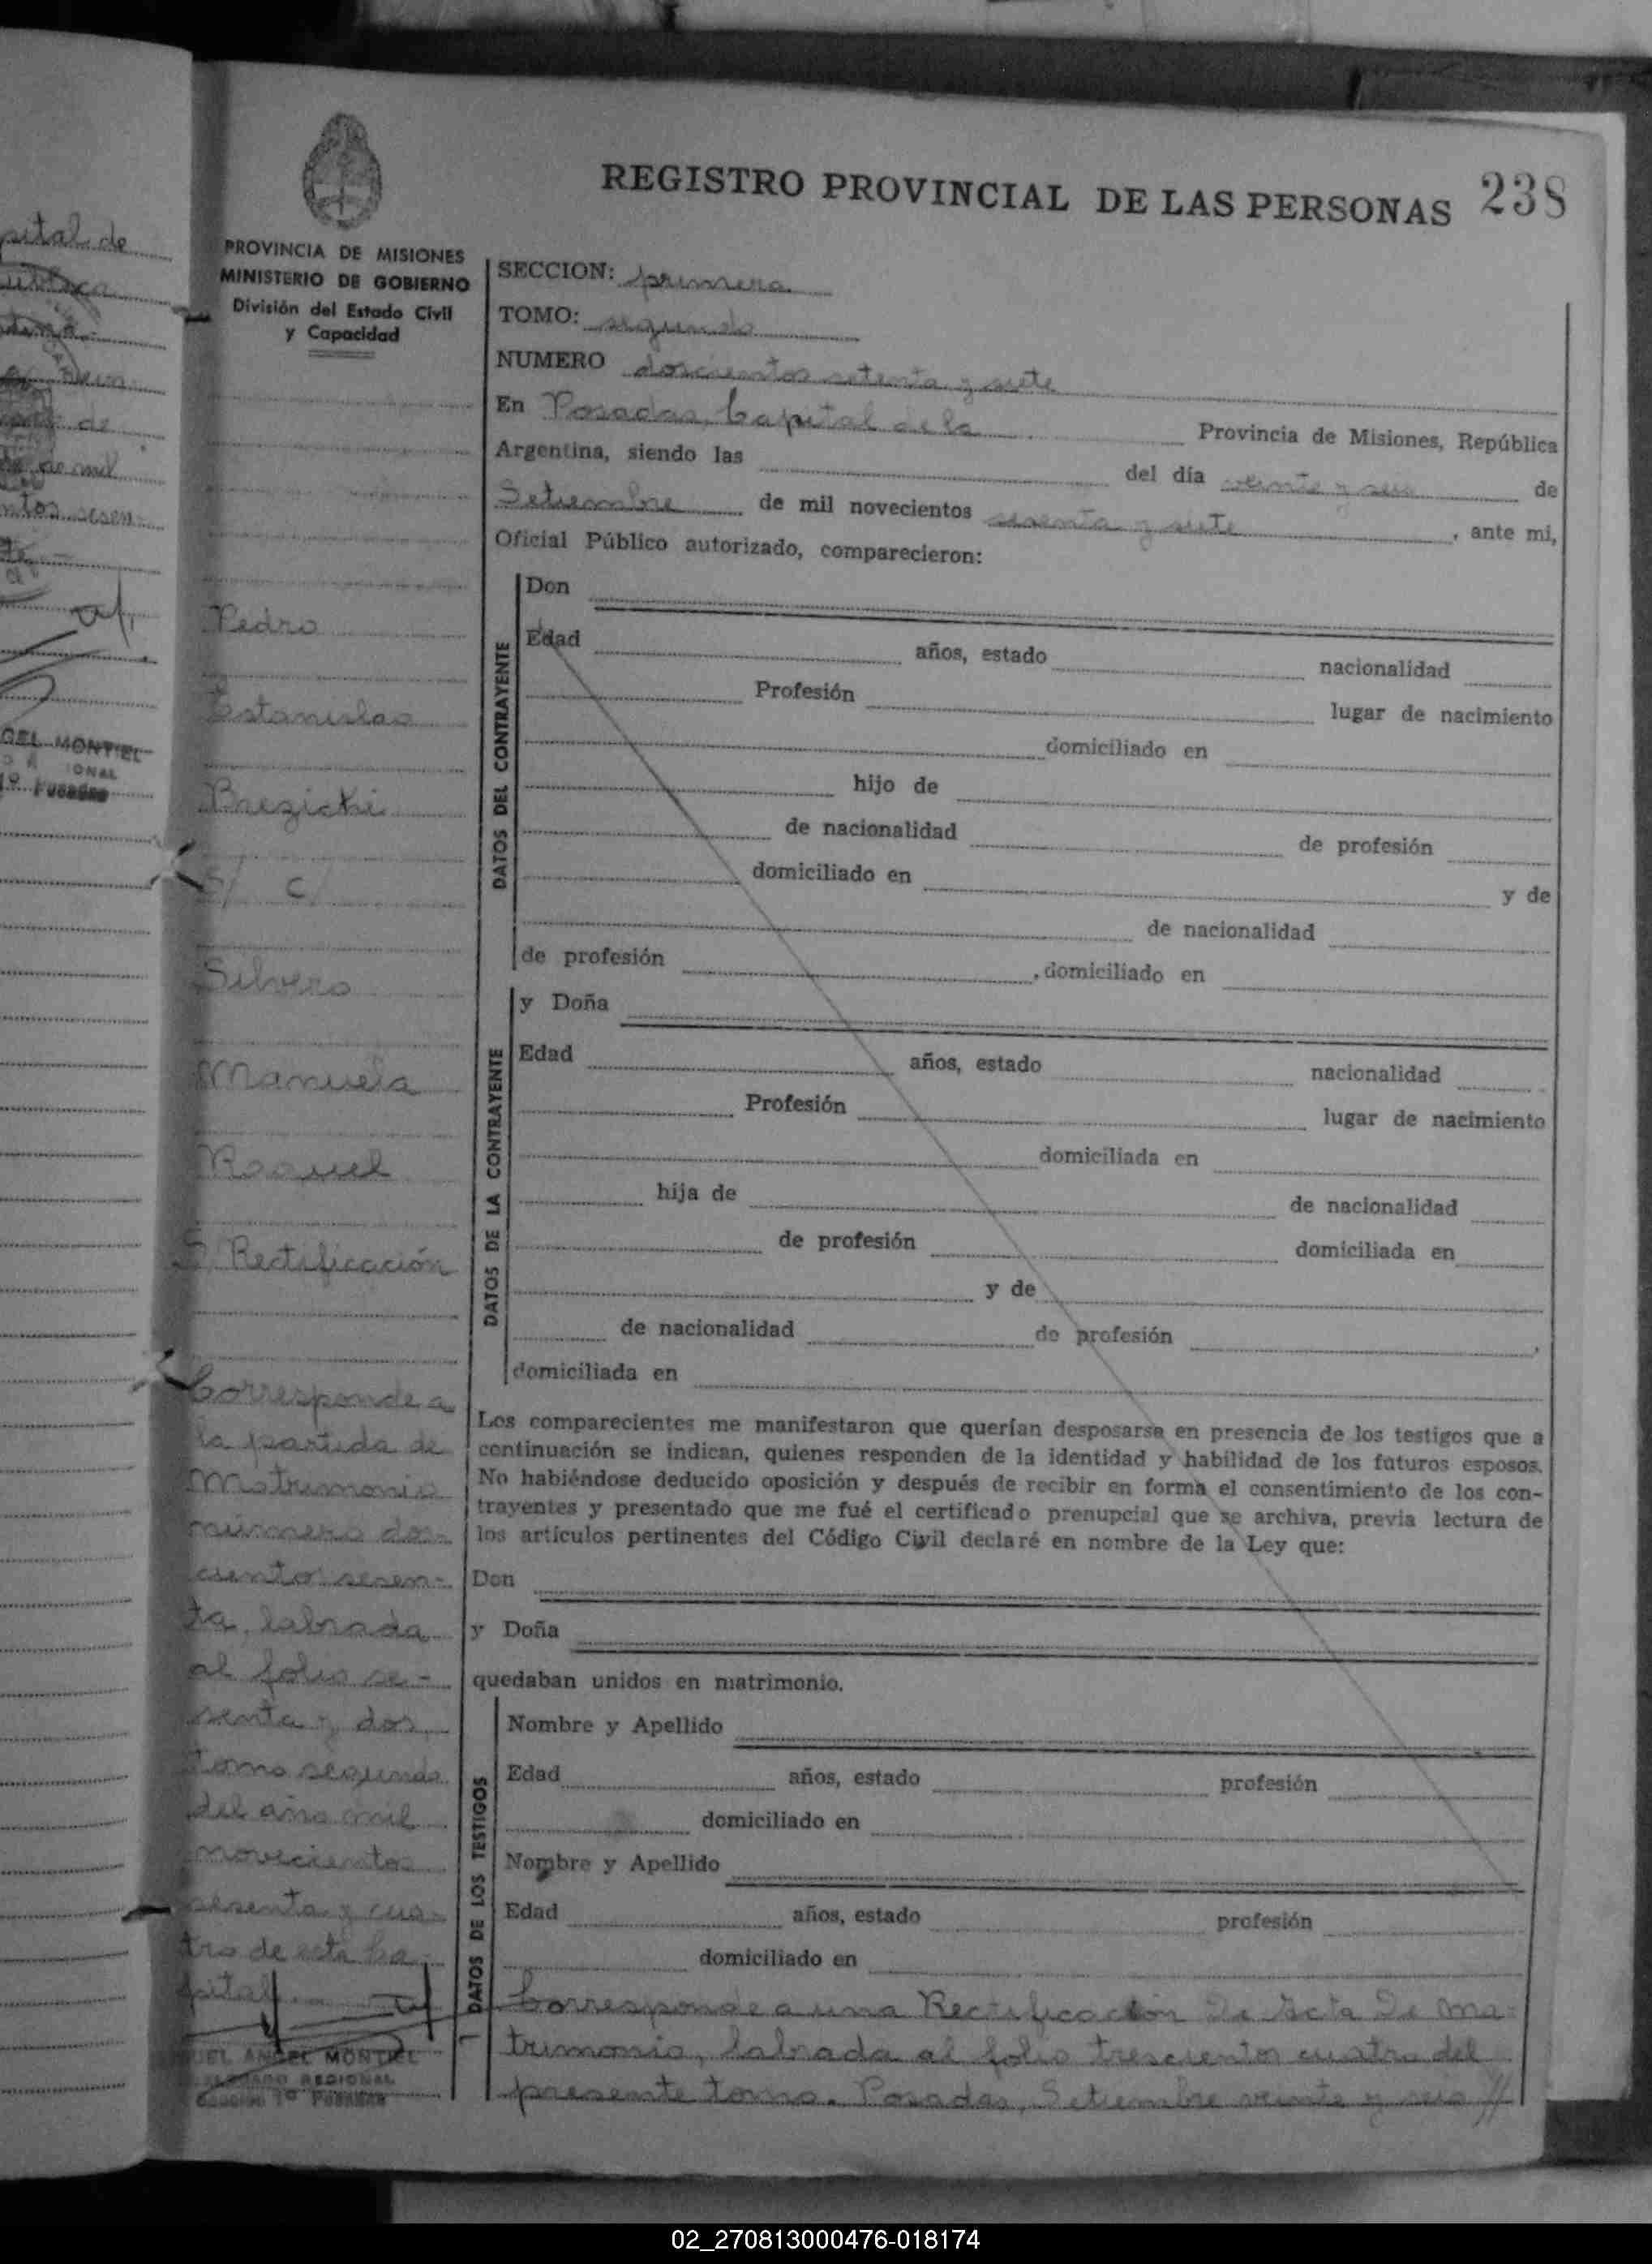 REGISTRO PROVINCIAL DE LAS PERSONAS 238
PROVINCIA DE MISIONES
MINISTERIO DE GOBIERNO
División del Estado Civil
y Capacidad
Pedro
Estanislao
Brezicki
S/ c/
Silvero
Manuela
Raquel
S/ Rectificación
Corresponde a
la partida de
Matrimonio
número dos-
cientos sesen-
ta, labrada
al folio se-
senta y dos,
tomo segundo
del año mil
novecientos
sesenta y cua-
tro de esta Ca-
pital.
UEL ANGEL MONTIEL
REGIONAL
Sección 1ª Posadas
SECCION: primera
TOMO: segundo
NUMERO doscientos setenta y siete
En Posadas, Capital de la Provincia de Misiones, República
Argentina, siendo las del día veinte y seis de
Setiembre de mil novecientos sesenta y siete, ante mi,
Oficial Público autorizado, comparecieron:
DATOS DEL CONTRAYENTE
Don
Edad años, estado nacionalidad
Profesión lugar de nacimiento
domiciliado en
hijo de
de nacionalidad de profesión
domiciliado en y de
de nacionalidad
de profesión , domiciliado en
DATOS DE LA CONTRAYENTE
y Doña
Edad años, estado nacionalidad
Profesión lugar de nacimiento
domiciliada en
hija de de nacionalidad
de profesión domiciliada en
y de
de nacionalidad de profesión ,
domiciliada en
Los comparecientes me manifestaron que querían desposarse en presencia de los testigos que a
continuación se indican, quienes responden de la identidad y habilidad de los futuros esposos.
No habiéndose deducido oposición y después de recibir en forma el consentimiento de los con-
trayentes y presentado que me fué el certificado prenupcial que se archiva, previa lectura de
los artículos pertinentes del Código Civil declaré en nombre de la Ley que:
Don
y Doña
quedaban unidos en matrimonio.
DATOS DE LOS TESTIGOS
Nombre y Apellido
Edad años, estado profesión
domiciliado en
Nombre y Apellido
Edad años, estado profesión
domiciliado en
Corresponde a una Rectificación De Acta De Ma-
trimonio, labrada al folio trescientos cuatro del
presente tomo. Posadas, Setiembre veinte y seis //
pital de
de
de mil
ntos sesen-
GEL MONTIEL
IONAL
1º Posadas
02_270813000476-018174